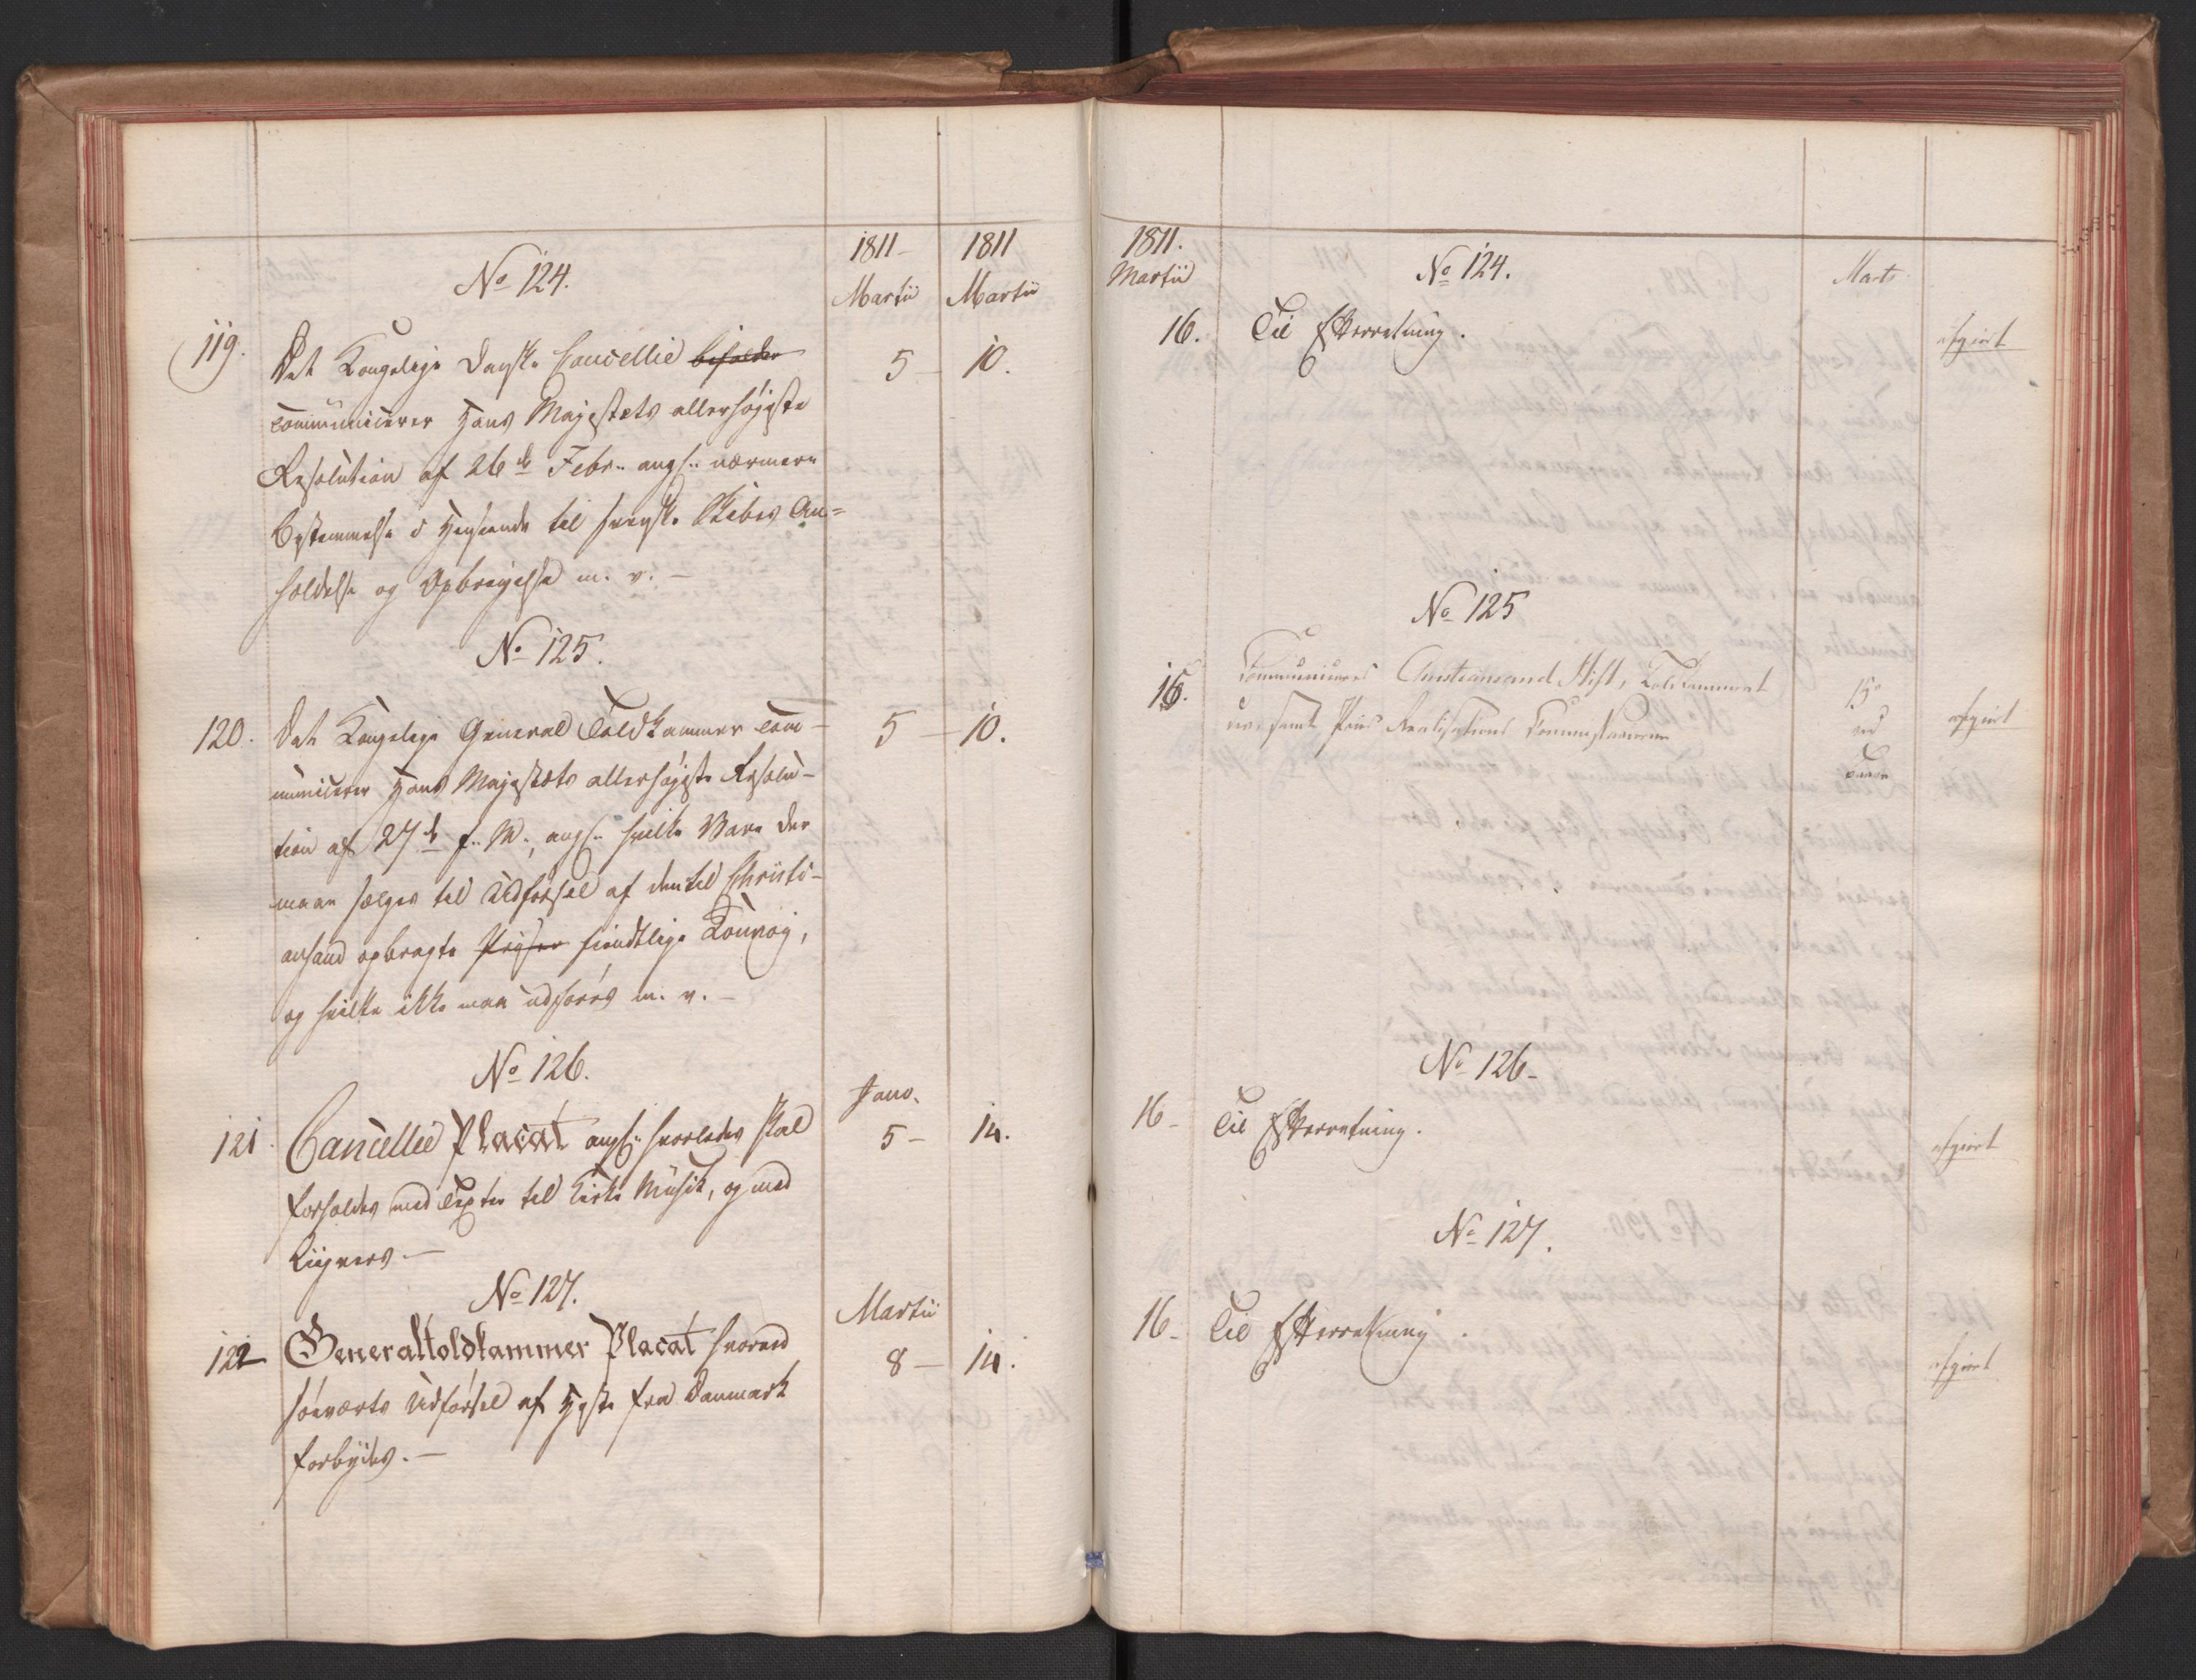 1811 - 1811
No 124. Martii Martii
119. Det Kongelige Danske Cancellie befalder 5 - 10.
communicerer Hans Majestæts allerhøjeste
Resolution af 26de Febr. angl. nærmere
Bestemmelse i Henseende til svenske Skibes An=
holdelse og Opbringelse m. v. -
No 125.
120. Det Kongelige General Toldkammer com- 5 - 10.
municerer Hans Majestæts allerhøjeste Resolu-
tion af 27de f. M., angl. hvilke Vare der
maae sælges til Udførsel af den til Christi-
ansand opbragte Priser fiendtlige Convoy,
og hvilke ikke maa udføres m. v. -
No 126.
Janv.
121. Cancellie Placat angl. hvorledes skal 5 - 14.
forholdes med Texter til Kirke Musik, og med
No 127. Martii
122 Generaltoldkammer Placat hvorved 8 - 14.
søeværts Udførsel af Heste fra Danmark
forbydes. -
1811.
Martii No 124. Marts
16. Til Efterretning. afgiort
No 125
15. Communiceres Christiansand Stift, Toldkammeret 15de
samt Priis Realisations Commissairerne afgiort
No 126-
16- Til Efterretning. afgiort
No 127.
16- Til Efterretning. afgiort